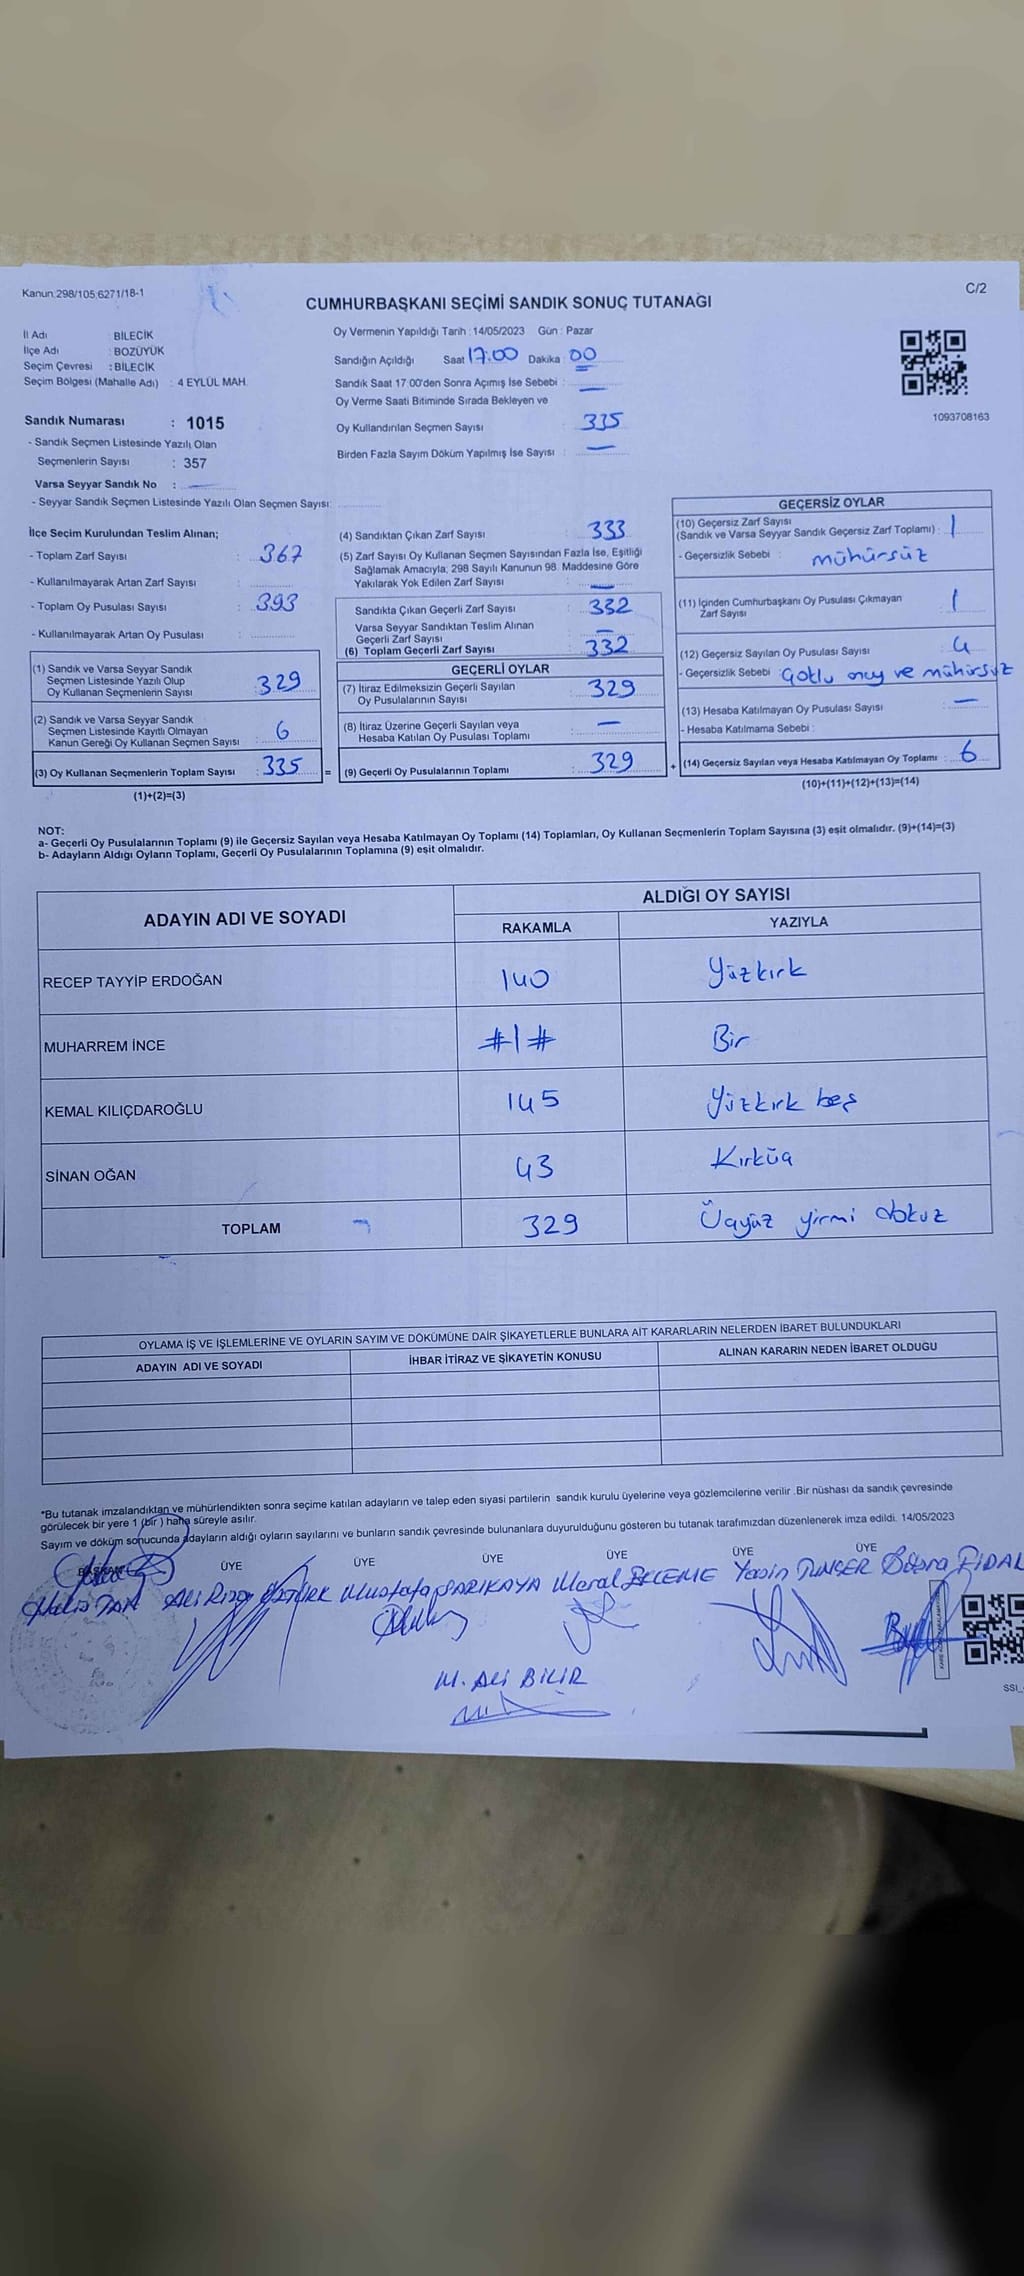 Kanun:298/105;6271/18-1
C/2
CUMHURBAŞKANI SEÇİMİ SANDIK SONUÇ TUTANAĞI
İl Adı : BİLECİK
İlçe Adı : BOZÜYÜK
Seçim Çevresi : BİLECİK
Seçim Bölgesi (Mahalle Adı) : 4 EYLÜL MAH.
Sandık Numarası : 1015
- Sandık Seçmen Listesinde Yazılı Olan
Seçmenlerin Sayısı : 357
Varsa Seyyar Sandık No :
- Seyyar Sandık Seçmen Listesinde Yazılı Olan Seçmen Sayısı:
Oy Vermenin Yapıldığı Tarih : 14/05/2023 Gün : Pazar
Sandığın Açıldığı Saat 17:00 Dakika : 00
Sandık Saat 17:00'den Sonra Açımış İse Sebebi : —
Oy Verme Saati Bitiminde Sırada Bekleyen ve
Oy Kullandırılan Seçmen Sayısı 335
Birden Fazla Sayım Döküm Yapılmış İse Sayısı : —
1093708163
İlçe Seçim Kurulundan Teslim Alınan;
- Toplam Zarf Sayısı : 367
- Kullanılmayarak Artan Zarf Sayısı :
- Toplam Oy Pusulası Sayısı : 393
- Kullanılmayarak Artan Oy Pusulası :
(1) Sandık ve Varsa Seyyar Sandık
Seçmen Listesinde Yazılı Olup
Oy Kullanan Seçmenlerin Sayısı : 329
(2) Sandık ve Varsa Seyyar Sandık
Seçmen Listesinde Kayıtlı Olmayan
Kanun Gereği Oy Kullanan Seçmen Sayısı : 6
(3) Oy Kullanan Seçmenlerin Toplam Sayısı : 335 =
(1)+(2)=(3)
(4) Sandıktan Çıkan Zarf Sayısı : 333
(5) Zarf Sayısı Oy Kullanan Seçmen Sayısından Fazla İse, Eşitliği
Sağlamak Amacıyla; 298 Sayılı Kanunun 98. Maddesine Göre
Yakılarak Yok Edilen Zarf Sayısı : —
Sandıkta Çıkan Geçerli Zarf Sayısı : 332
Varsa Seyyar Sandıktan Teslim Alınan
Geçerli Zarf Sayısı : —
(6) Toplam Geçerli Zarf Sayısı : 332
GEÇERLİ OYLAR
(7) İtiraz Edilmeksizin Geçerli Sayılan
Oy Pusulalarının Sayısı : 329
(8) İtiraz Üzerine Geçerli Sayılan veya
Hesaba Katılan Oy Pusulası Toplamı : —
(9) Geçerli Oy Pusulalarının Toplamı : 329 +
GEÇERSİZ OYLAR
(10) Geçersiz Zarf Sayısı
(Sandık ve Varsa Seyyar Sandık Geçersiz Zarf Toplamı) : 1
- Geçersizlik Sebebi : mühürsüz
(11) İçinden Cumhurbaşkanı Oy Pusulası Çıkmayan
Zarf Sayısı : 1
(12) Geçersiz Sayılan Oy Pusulası Sayısı : 4
- Geçersizlik Sebebi : Çoklu oy ve mühürsüz
(13) Hesaba Katılmayan Oy Pusulası Sayısı : —
- Hesaba Katılmama Sebebi :
(14) Geçersiz Sayılan veya Hesaba Katılmayan Oy Toplamı : 6
(10)+(11)+(12)+(13)=(14)
NOT:
a- Geçerli Oy Pusulalarının Toplamı (9) ile Geçersiz Sayılan veya Hesaba Katılmayan Oy Toplamı (14) Toplamları, Oy Kullanan Seçmenlerin Toplam Sayısına (3) eşit olmalıdır. (9)+(14)=(3)
b- Adayların Aldığı Oyların Toplamı, Geçerli Oy Pusulalarının Toplamına (9) eşit olmalıdır.
ADAYIN ADI VE SOYADI
ALDIĞI OY SAYISI
RAKAMLA YAZIYLA
RECEP TAYYİP ERDOĞAN 140 Yüzkırk
MUHARREM İNCE #1# Bir
KEMAL KILIÇDAROĞLU 145 Yüzkırk beş
SİNAN OĞAN 43 Kırküç
TOPLAM 329 Üçyüz yirmi dokuz
OYLAMA İŞ VE İŞLEMLERİNE VE OYLARIN SAYIM VE DÖKÜMÜNE DAİR ŞİKAYETLERLE BUNLARA AİT KARARLARIN NELERDEN İBARET BULUNDUKLARI
ADAYIN ADI VE SOYADI İHBAR İTİRAZ VE ŞİKAYETİN KONUSU ALINAN KARARIN NEDEN İBARET OLDUĞU
*Bu tutanak imzalandıktan ve mühürlendikten sonra seçime katılan adayların ve talep eden siyasi partilerin sandık kurulu üyelerine veya gözlemcilerine verilir. Bir nüshası da sandık çevresinde
görülecek bir yere 1 (bir ) hafta süreyle asılır.
Sayım ve döküm sonucunda adayların aldığı oyların sayılarını ve bunların sandık çevresinde bulunanlara duyurulduğunu gösteren bu tutanak tarafımızdan düzenlenerek imza edildi. 14/05/2023
BAŞKAN ÜYE ÜYE ÜYE ÜYE ÜYE ÜYE
Ali Rıza ÖZTÜRK Mustafa SARIKAYA Meral Yasin TUNSER Büşra FİDAN
M. Ali BİLİR